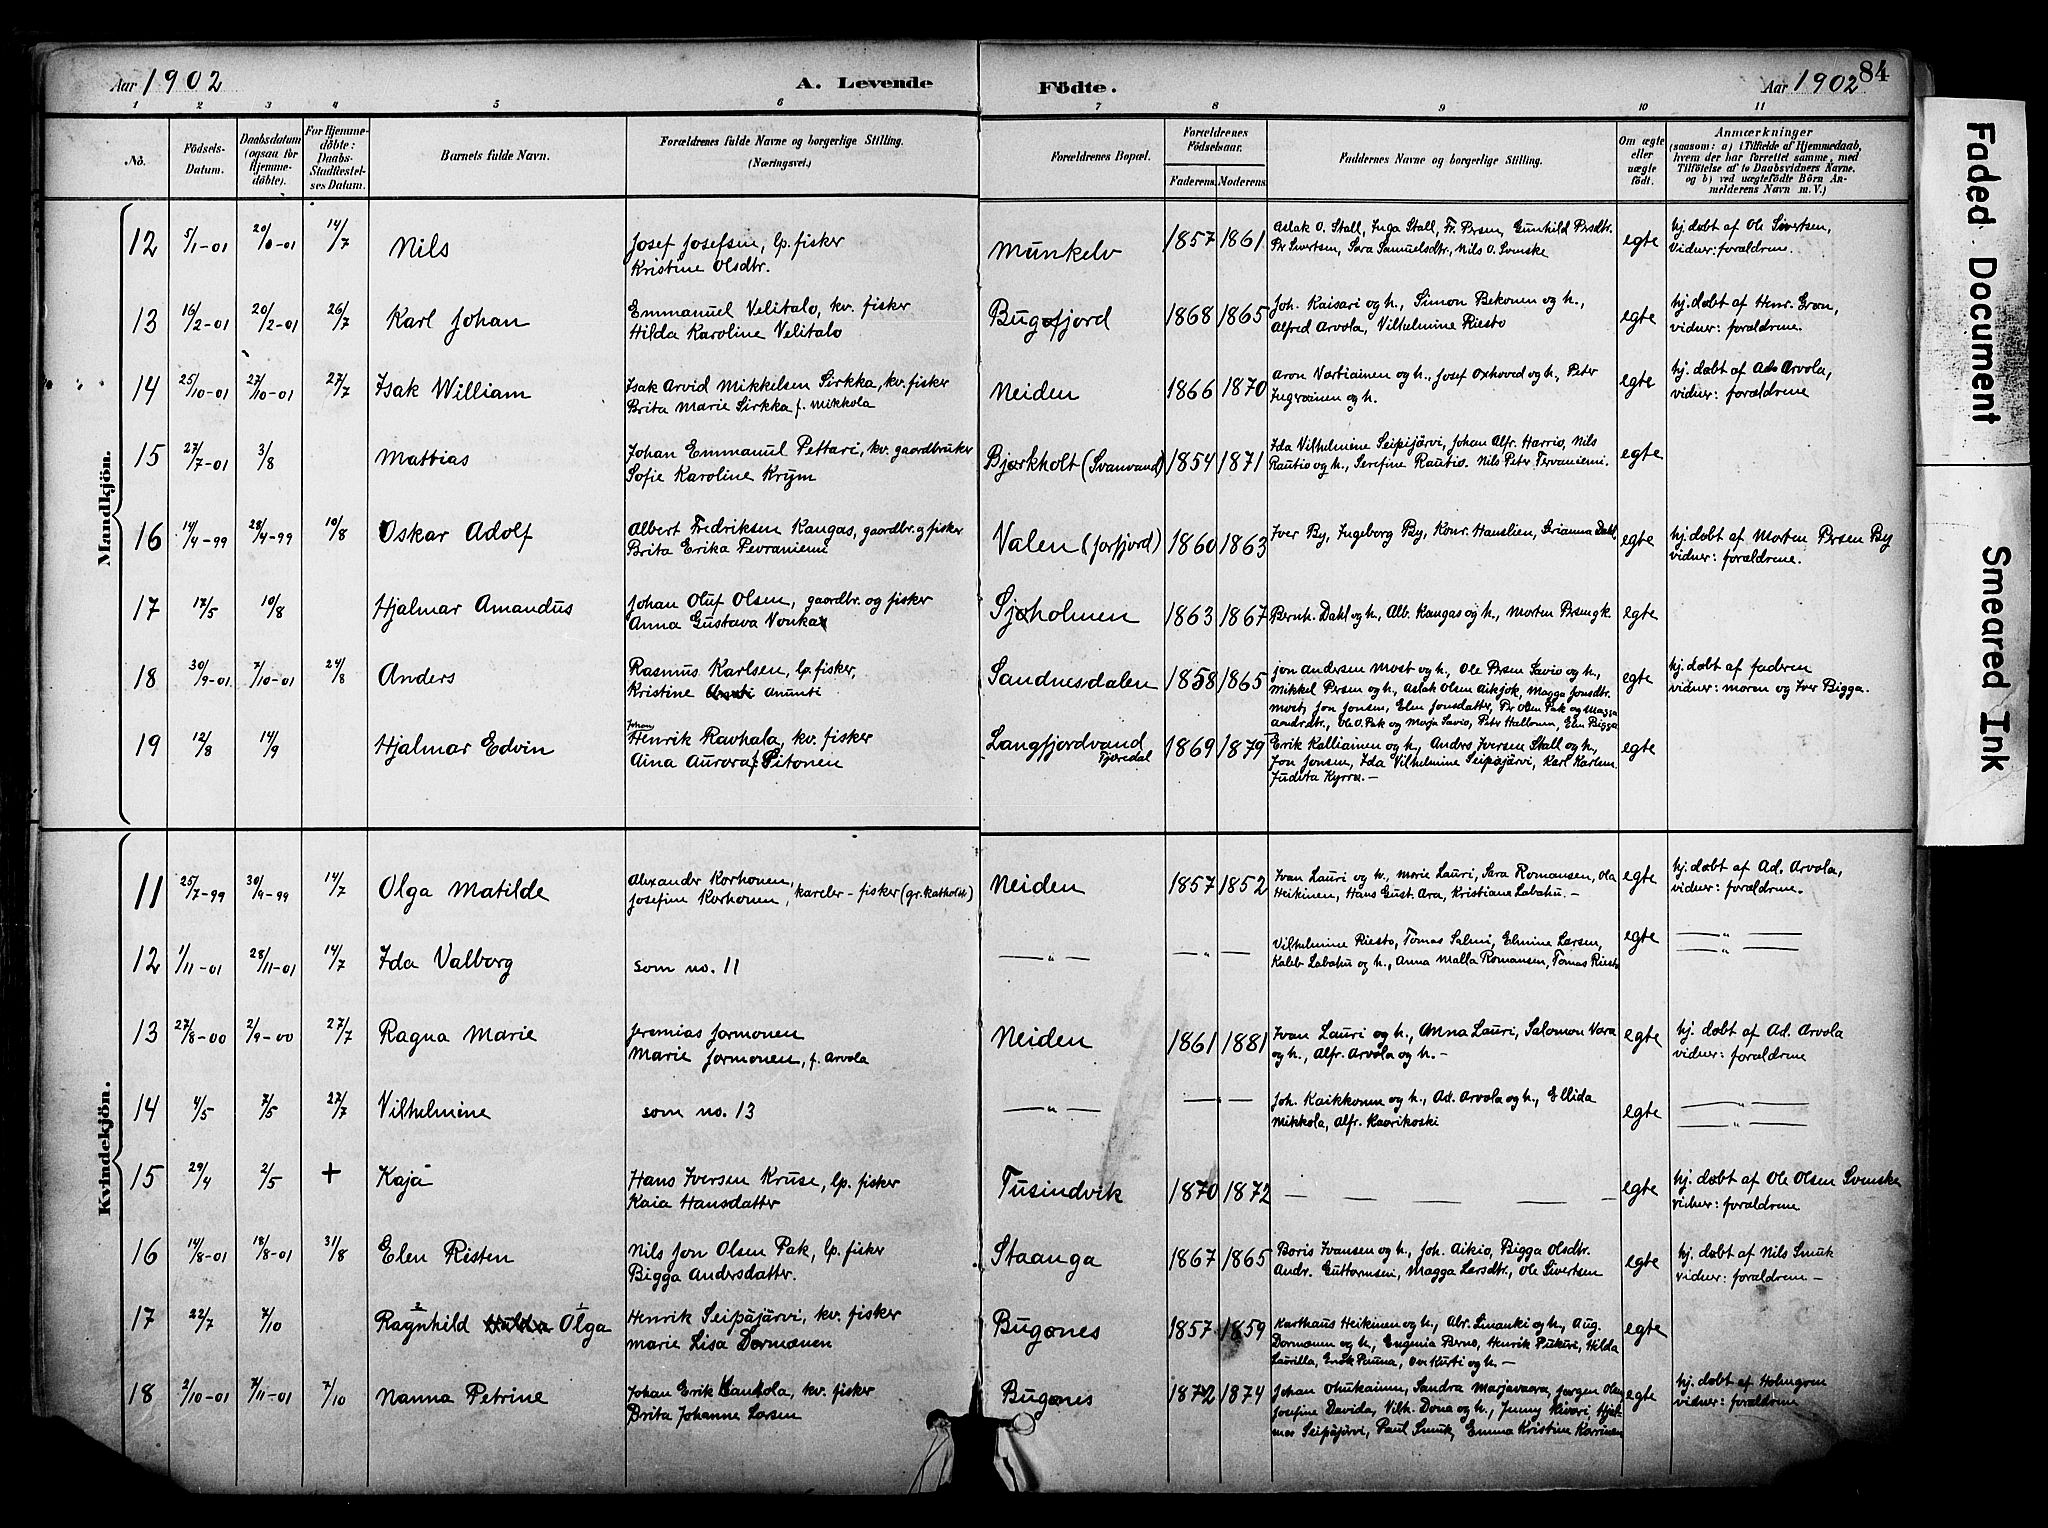 Aar 1902 A. Levende Födte. Aar 1902 84
1 2 3 4 5 6 7 8 9 10 11
No. Födsels-Datum. Daabsdatum (ogsaa for Hjemme-döbte). For Hjemme-döbte: Daabs-Stadfæstel-ses Datum. Barnets fulde Navn. Forældrenes fulde Navne og borgerlige Stilling. (Næringsvei.) Forældrenes Bopæl. Forældrenes Födselsaar. Faderens. Moderens. Faddernes Navne og borgerlige Stilling. Om ægte eller uægte født. Anmærkninger (saasom: a) i Tilfælde af Hjemmedaab, hvem der har forrettet samme, med Tilföielse af to Daabsvidners Navne, og b) ved uægtefödte Börn An-melderens Navn m. V.)
Mandkjön.
12 5/1-01 20/1-01 14/7 Nils Josef Josefsen, lp. fisker Munkelv 1857 1861 Aslak O. Stall, Inga Stall, Fr. Prsen, Gunhild Prsdtr. egte hj. døbt af Ole Sivertsen,
Kristine Olsdtr. Pr Sivertsen, Sara Samuelsdtr, Nils O. Svenske vidner: forældrene.
13 16/2-01 20/2-01 26/7 Karl Johan Emmanuel Velitalo, kv. fisker Bugøfjord 1868 1865 Joh. Kaisari og h., Simon Bekonen og h., egte hj. døbt af Henr. Grøn,
Hilda Karoline Velitalo Alfred Arvola, Vilhelmine Riesto vidner: forældrene.
14 25/10-01 27/10-01 27/7 Isak William Isak Arvid Mikkelsen Sirkka, kv. fisker Neiden 1866 1870 Aron Værtiainen og h., Josef Oxhoved og h., Peter egte hj. døbt af Ad. Arvola,
Brita Marie Sirkka f. Mikkola Ingrainen og h. vidner: forældrene
15 27/7-01 3/8 Mattias Johan Emmanuel Pettari, kv. gaardbruker Bjørkholt (Svanvand) 1854 1871 Ida Vilhelmine Seipijärvi, Johan Alfr. Harrio, Nils egte
Sofie Karoline Krym Rautio og h., Serefine Rautio. Nils Peter Tervaniemi.
16 14/4-99 28/4-99 10/8 Oskar Adolf Albert Fredriksen Kangas, gaardbr. og fisker Valen (Jarfjord) 1860 1863 Iver By, Ingeborg By, Konr. Hanslien, Grianna Dahl egte hj. døbt af Morten Prsen By
Brita Erika Pevraniemi vidner: forældrene.
17 17/5 10/8 Hjalmar Amandus Johan Oluf Olsen, gaardbr. og fisker Sjøholmen 1863 1867 Bernh. Dahl og h., Alb. Kangas og h., Morten Prsen gk. egte
Anna Gustava Vonka
18 30/9-01 7/10-01 24/8 Anders Rasmus Karlsen, lp. fisker, Sandnesdalen 1858 1865 Jon Andersen Most og h., Ole Prsen Savio og h., egte hj. døbt af faderen
Kristine Anunti Mikkel Persen og h., Aslak Olsen Aikjok, Magga Jonsdtr. vidner: moren og Iver Bigga.
Most, Jon Jonsen, Elen Jonsdatter, Pr Olsen Pak og Magga
Andrdtr., Ole O. Pak og Marja Savio, Petr Halbonen, Elen Bigga
19 12/8 14/9 Hjalmar Edvin Johan Henrik Ravhala, kv. fisker Langfjordvand 1869 1879 Erik Kalliainen og h., Andrs Iversen Stall og h., egte
Aina Aurora f. Pitonen Fjøredal Jon Jonsen, Ida Vilhelmine Seipäjärvi, Karl Karlsen.
Judita Kyrrø. -
Kvindekjön.
11 25/7-99 30/9-99 14/7 Olga Matilde Alexander Korhonen, Neiden 1857 1852 Ivan Lauri og h, Marie Lauri, Sara Romansen, Ola egte hj. døbt af Ad. Arvola,
Josefine Korhonen, kareler-fisker (gr. katholsk) Heikinen, Hans Gust. Ara, Kristiane Labahu. - vidner: forældrene.
12 1/11-01 28/11-01 14/7 Ida Valborg som no. 11 — " — — " — Vilhelmine Riesto, Tomas Salmi, Elmine Larsen, egte — " —
Kaleb Labahu og h., Anna Malla Romansen, Tomas Riesto — " —
13 27/8-00 2/9-00 27/7 Ragna Marie Jeremias Jormonen Neiden 1861 1881 Ivan Lauri og h., Anna Lauri, Salomon Vara egte hj. døbt af Ad. Arvola
Marie Jormonen, f. Arvola og h., Alfr. Arvola og h. - vidner: forældrene
14 4/5 7/5 27/7 Vilhelmine som no. 13 — " — — " — Joh. Kaikkonen og h., Ad. Arvola og h., Ellida egte — " —
Mikkola, Alfr. Kaarikoski — " —
15 29/4 2/5 + Kaja Hans Iversen Kruse, lp. fisker Tusindvik 1870 1872 — — — — — egte hj. døbt af Ole Olsen Svenske
Kaia Hansdatter vidner: forældrene
16 14/8-01 18/8-01 31/8 Elen Risten Nils Jon Olsen Pak, lp. fisker Staanga 1867 1865 Boris Ivansen og h., Joh. Aikio, Bigga Olsdtr. egte hj. døbt af Nils Smuk
Bigga Andersdatter. Andr. Guttormsen, Magga Larsdtr., Ole Sivertsen vidner: forældrene -
17 22/7 7/10 Ragnhild Olga Henrik Seipäjärvi, kv. fisker Bugønes 1857 1859 Karthaus Heikinen og h., Abr. Linanki og h., Aug. egte
Marie Lisa Dørmænen Dormænn og h., Eugenia Berno, Henrik Pukari, Hilda
Laurilla, Enok Pauna, Ove Kurti og h. -
18 2/10-01 7/11-01 7/10 Nanna Petrine Johan Erik Lantola, kv. fisker Bugønes 1872 1874 Johan Ohukainen, Sandra Marjavaara, Jørgen Olsen egte hj. døbt af Holmgren
Brita Johanne Larsen Josefine Davida, Vilh. Dona og h., Jenny Kivari, Hjal- vidner: forældrene
mar Seipäjärvi, Paul Smuk, Emma Kristine Karrinen
Faded Document
Smeared Ink